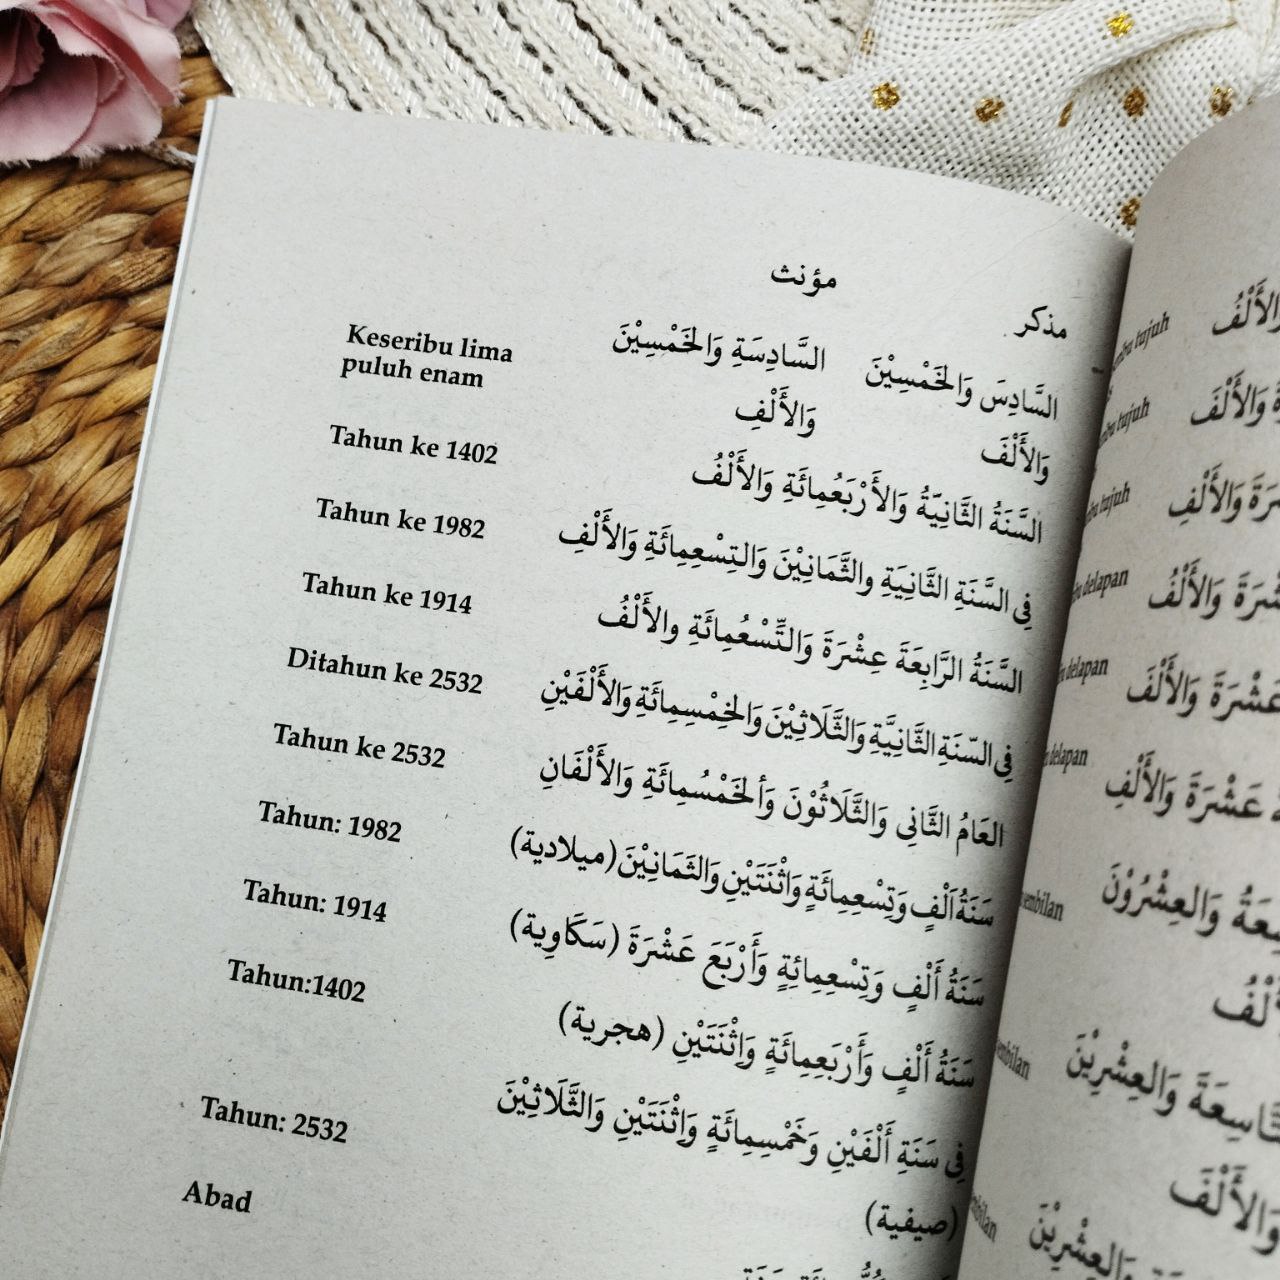 مذكر مؤنث
السَّادِسَ وَالخَمْسِيْنَ السَّادِسَةِ وَالخَمْسِيْنَ Keseribu lima
وَالأَلْفَ وَالأَلْفِ puluh enam
السَّنَةُ الثَّانِيَةُ وَالأَرْبَعُمِائَةِ وَالأَلْفُ Tahun ke 1402
فِى السَّنَةِ الثَّانِيَةِ والثَّمَانِيْنَ وَالتِسْعِمِائَةِ وَالأَلْفِ Tahun ke 1982
السَّنَةُ الرَّابِعَةَ عِشْرَةَ وَالتِّسْعُمِائَةِ والأَلْفُ Tahun ke 1914
فِى السّنَةِ الثَّانِيَّةِ وَالثَّلَاثِيْنَ وَالخِمْسِمِائَةِ وَالأَلْفَيْنِ Ditahun ke 2532
العَامُ الثَّانِى وَالثَّلَاثُوْنَ وَألخَمْسُمِائَةِ وَالأَلْفَانِ Tahun ke 2532
سَنَةُ اَلْفٍ وَتِسْعِمِائَةٍ وَاثْنَتَيْنِ وَالثَمَانِيْنَ (ميلادية) Tahun: 1982
سَنَةُ أَلْفٍ وَتِسْعِمِائِةٍ وَأَرْبَعَ عَشْرَةَ (سَكَاوِية) Tahun: 1914
سَنَةُ أَلْفٍ وَأَرْبَعِمِائَةٍ وَاِثْنَتَيْنِ (هجرية) Tahun:1402
فِى سَنَةِ أَلْفَيْنِ وَخَمْسِمِائَةٍ وَاِثْنَتَيْنِ وَالثَّلَاثِيْنَ Tahun: 2532
(صيفية) Abad
tujuh وَالأَلْفُ
tujuh وَالأَلْفَ
tujuh وَالأَلْفِ
delapan عَشْرَةَ وَالأَلْفُ
delapan عَشْرَةَ وَالأَلْفَ
delapan عَشْرَةَ وَالأَلْفِ
sembilan وَالعِشْرُوْنَ
sembilan التَّاسِعَةَ وَالعِشْرِيْنَ
وَالأَلْفَ
وَالعِشْرِيْنَ